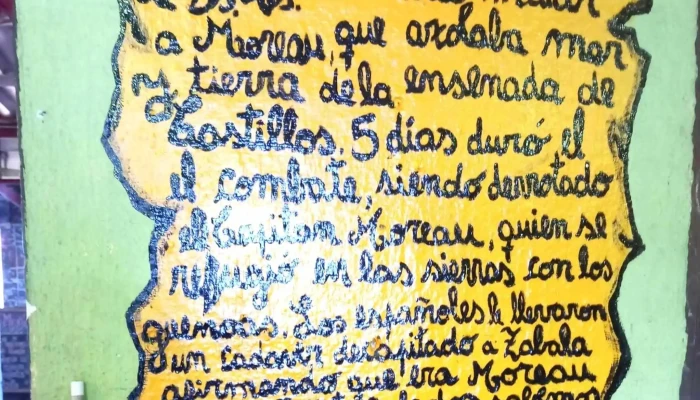 a Moreau, que asolaba mar
y tierra de la ensenada de
Castillos. 5 días duró el
el combate, siendo derrotado
el Capitan Moreau, quien se
refugió en las sierras con los
guenoas. Los españoles le llevaron
un cadaver decapitado a Zabala
afirmando que era Moreau